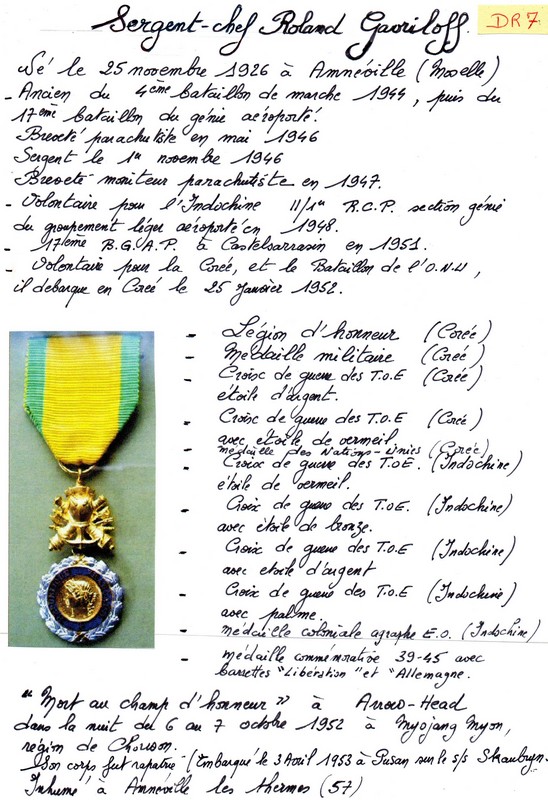 Sergent-chef Roland Gavriloff.
DR7
Né le 25 novembre 1926 à Amnéville (Moselle)
- Ancien du 4ème bataillon de marche 1944, puis du
17ème bataillon du génie aéroporté.
Breveté parachutiste en mai 1946
Sergent le 1er novembre 1946
Breveté moniteur parachutiste en 1947.
- Volontaire pour l'Indochine II/1er R.C.P. section génie
du groupement léger aéroporté en 1948.
- 17ième B.G.A.P. à Castelsarrasin en 1951.
- Volontaire pour la Corée, et le Bataillon de l'O.N.U,
il debarque en Corée le 25 Janvier 1952.
- Légion d'honneur (Corée)
- Médaille militaire (Corée)
- Croix de guerre des T.O.E (Corée)
étoile d'argent.
- Croix de guerre des T.O.E (Corée)
avec étoile de vermeil
- médaille des Nations-Unies (Corée)
- Croix de guerre des T.O.E. (Indochine)
étoile de vermeil.
- Croix de guerre des T.O.E. (Indochine)
avec étoile de bronze.
- Croix de guerre des T.O.E (Indochine)
avec etoile d'argent
- Croix de guerre des T.O.E (Indochine)
avec palme.
- médaille coloniale agraphe E.O. (Indochine)
- médaille commémorative 39-45 avec
barrettes "Libération" et "Allemagne.
"Mort au champ d'honneur" à Arrow-Head
dans la nuit du 6 au 7 octobre 1952 à Myojang Myon,
région de Chorwon.
Son corps fut rapatrié (Embarqué le 3 Avril 1953 à Pusan sur le s/s Skaubryn.
Inhumé à Amnéville les thermes (57)